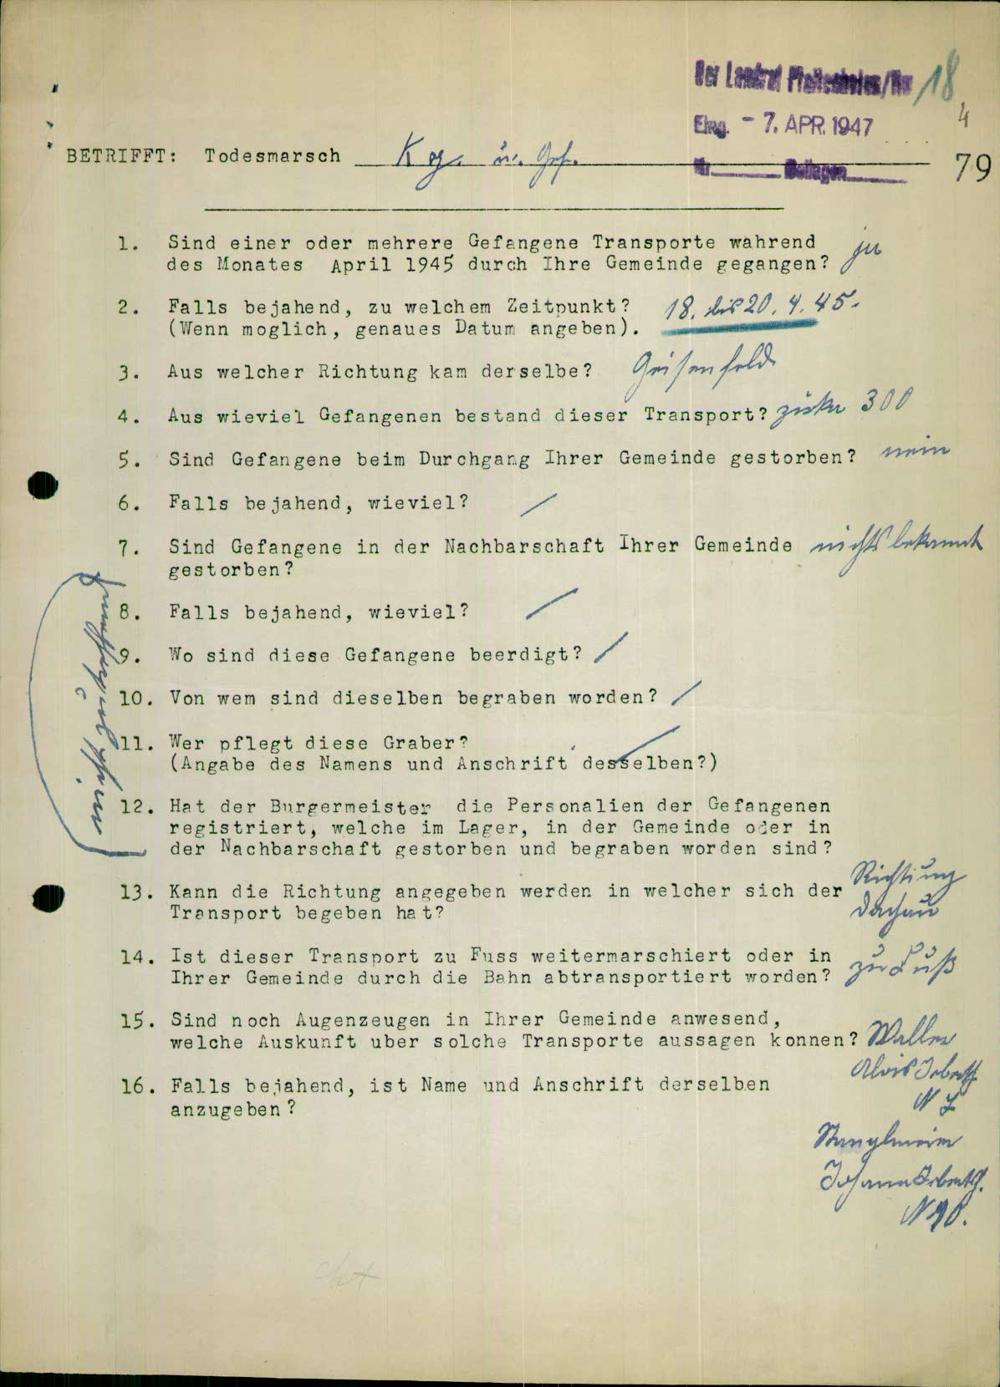 Der Landrat Pfaffenhofen/Ilm 18
Eing. - 7. APR. 1947 4
BETRIFFT: Todesmarsch Kg. u. Gef. 79
Nr. Beilagen
1. Sind einer oder mehrere Gefangene Transporte wahrend ja
des Monates April 1945 durch Ihre Gemeinde gegangen?
2. Falls bejahend, zu welchem Zeitpunkt? 18. bis 20. 4. 45.
(Wenn moglich, genaues Datum angeben).
3. Aus welcher Richtung kam derselbe? Geisenfeld
4. Aus wieviel Gefangenen bestand dieser Transport? zirka 300
5. Sind Gefangene beim Durchgang Ihrer Gemeinde gestorben? nein
6. Falls bejahend, wieviel? /
7. Sind Gefangene in der Nachbarschaft Ihrer Gemeinde nichts bekannt
gestorben?
8. Falls bejahend, wieviel? /
9. Wo sind diese Gefangene beerdigt? /
10. Von wem sind dieselben begraben worden? /
11. Wer pflegt diese Graber? /
(Angabe des Namens und Anschrift desselben?)
12. Hat der Burgermeister die Personalien der Gefangenen
registriert, welche im Lager, in der Gemeinde oder in
der Nachbarschaft gestorben und begraben worden sind?
13. Kann die Richtung angegeben werden in welcher sich der Richtung
Transport begeben hat? Dachau
14. Ist dieser Transport zu Fuss weitermarschiert oder in zu Fuß
Ihrer Gemeinde durch die Bahn abtransportiert worden?
15. Sind noch Augenzeugen in Ihrer Gemeinde anwesend,
welche Auskunft uber solche Transporte aussagen konnen?
Alois
16. Falls bejahend, ist Name und Anschrift derselben
anzugeben?